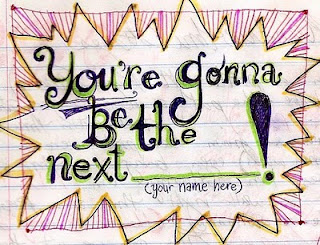 You're gonna
be the
next ________!
(your name here)